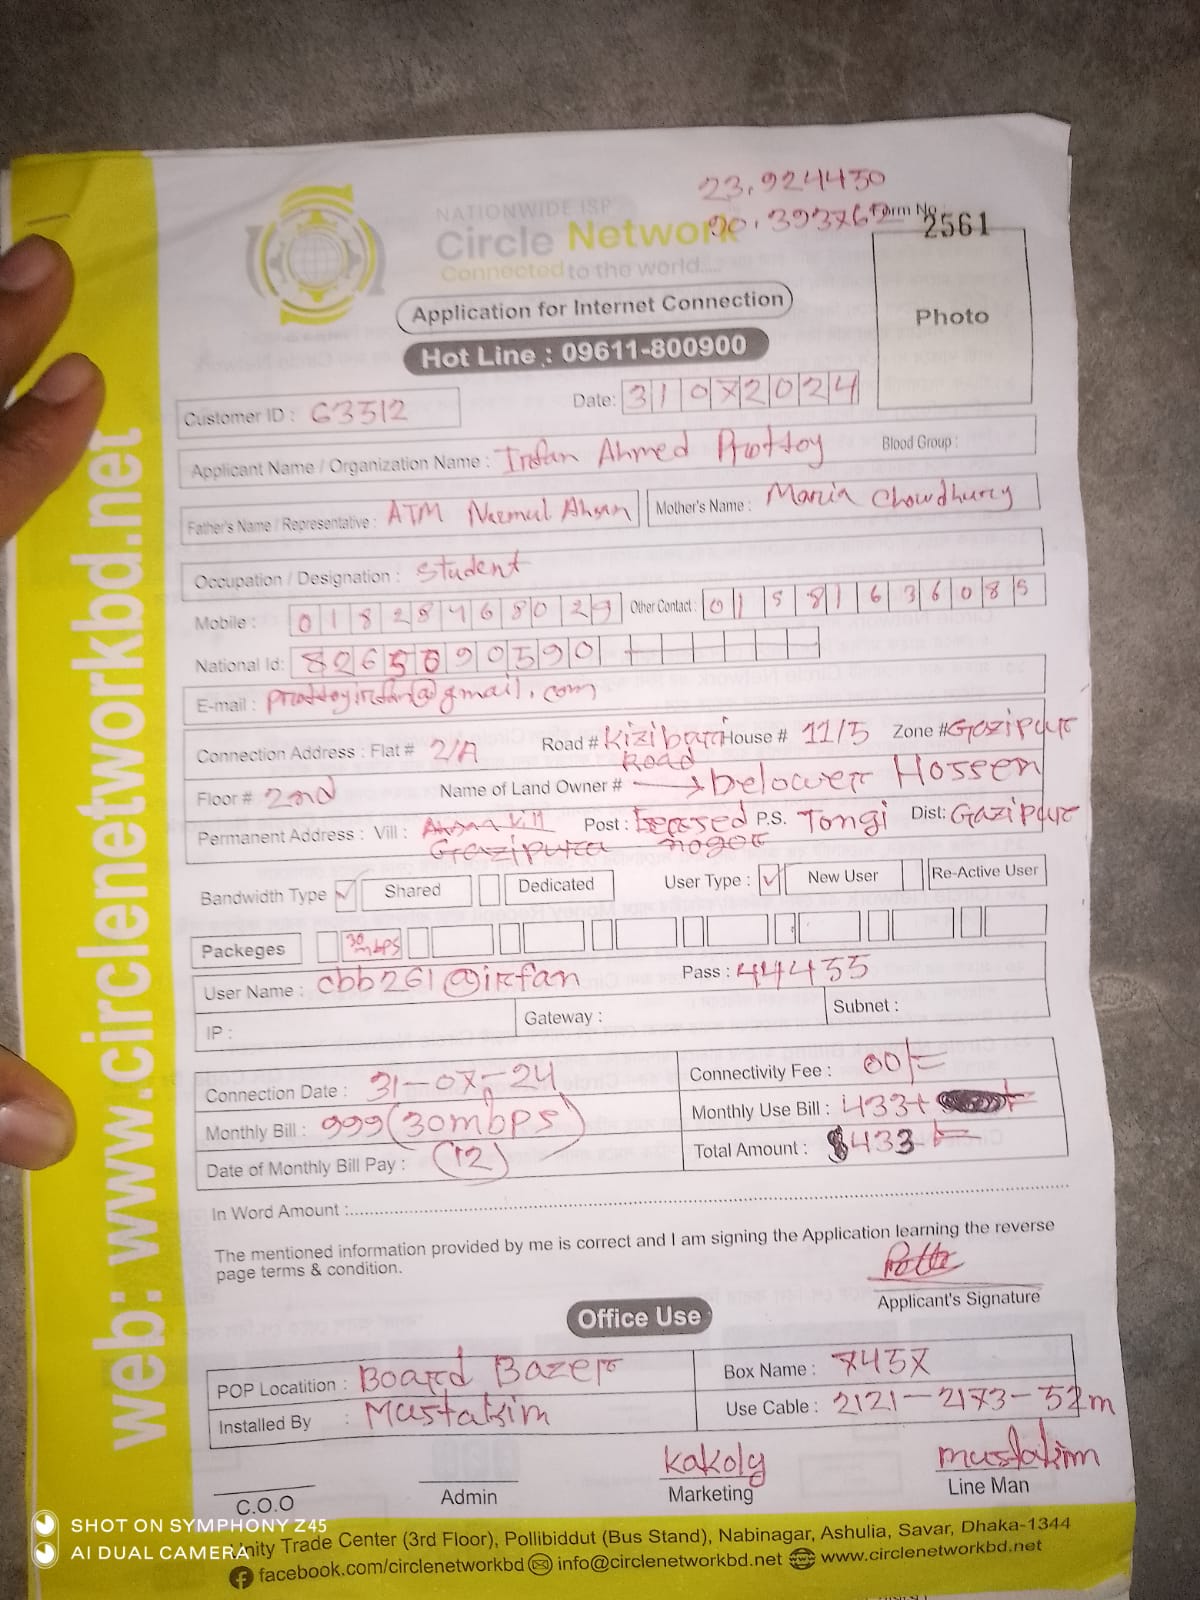 23.924430
90.393762
Form No
2561
NATIONWIDE ISP
Circle Network
Connected to the world....
Application for Internet Connection
Photo
Hot Line : 09611-800900
Customer ID : 63512
Date: 31072024
Applicant Name / Organization Name : Irfan Ahmed Prottoy Blood Group :
Father's Name / Representative : ATM Nazmul Ahsan Mother's Name : Maria Chowdhury
Occupation / Designation : Student
Mobile : 01828768029 Other Contact : 01581636085
National Id: 8265090590
E-mail : prottoyirfan@gmail.com
Connection Address : Flat # 2/A Road # Kizibari Road House # 11/5 Zone # Gazipur
Floor # 2nd Name of Land Owner # → Delower Hossen
Permanent Address : Vill : Gazipura Post : nogor P.S. Tongi Dist: Gazipur
Bandwidth Type ✓ Shared Dedicated User Type : ✓ New User Re-Active User
Packeges 30 mbps
User Name : cbb261@irfan Pass : 444455
IP : Gateway : Subnet :
Connection Date : 31-07-24 Connectivity Fee : 00/=
Monthly Bill : 999 (30mbps) Monthly Use Bill : 433+
Date of Monthly Bill Pay : (12) Total Amount : 433
In Word Amount :
The mentioned information provided by me is correct and I am signing the Application learning the reverse
page terms & condition.
Applicant's Signature
Office Use
POP Locatition : Board Bazer Box Name : 7457
Installed By : Mustakim Use Cable : 2121-2173-52m
kakoly mustakim
C.O.O Admin Marketing Line Man
Unity Trade Center (3rd Floor), Pollibiddut (Bus Stand), Nabinagar, Ashulia, Savar, Dhaka-1344
facebook.com/circlenetworkbd info@circlenetworkbd.net www.circlenetworkbd.net
web: www.circlenetworkbd.net
SHOT ON SYMPHONY Z45
AI DUAL CAMERA